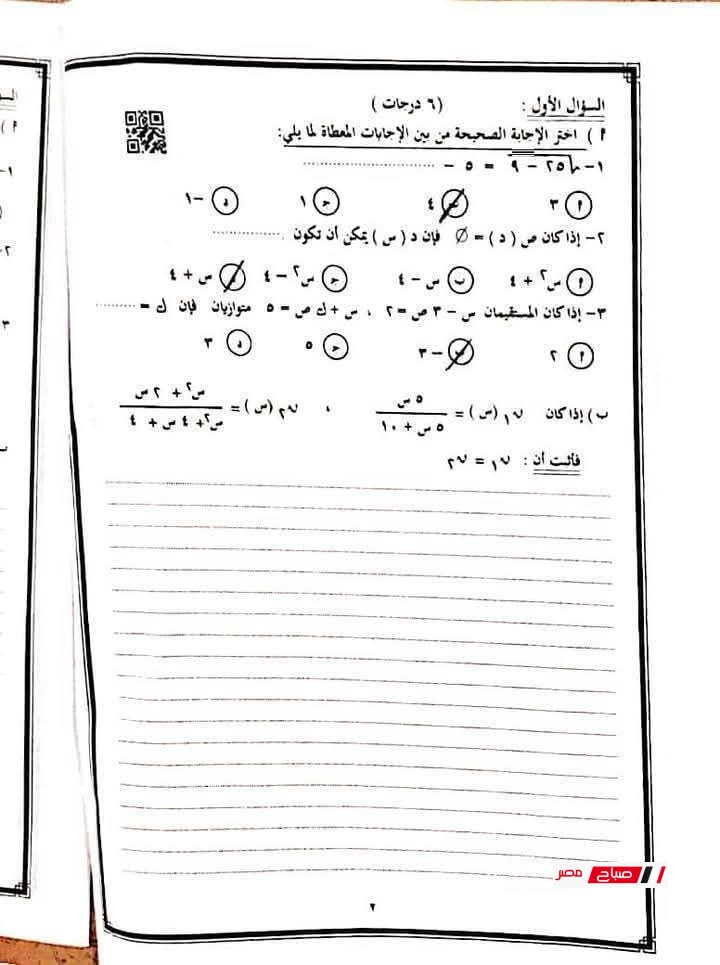 السؤال الأول : (٦ درجات )
أ ) اختر الإجابة الصحيحة من بين الإجابات المعطاة لما يلي:
١- √٢٥ - ٩ = ٥ - ..............
أ ٣ ب ٤ ج ١ د -١
٢- إذا كان ص ( د ) = ∅ فإن د ( س ) يمكن أن تكون ..............
أ س٢ + ٤ ب س - ٤ ج س٢ - ٤ د س + ٤
٣- إذا كان المستقيمان س - ٣ ص = ٢ ، س + ك ص = ٥ متوازيان فإن ك = ..........
أ ٢ ب -٣ ج ٥ د ٣
ب ) إذا كان ن١ (س) = ٥ س / ٥ س + ١٠ ، ن٢ (س) = س٢ + ٢ س / س٢ + ٤ س + ٤
فأثبت أن : ن١ = ن٢
صباح مصر
٢
السؤ
أ )
١-
٢-
٣
ب